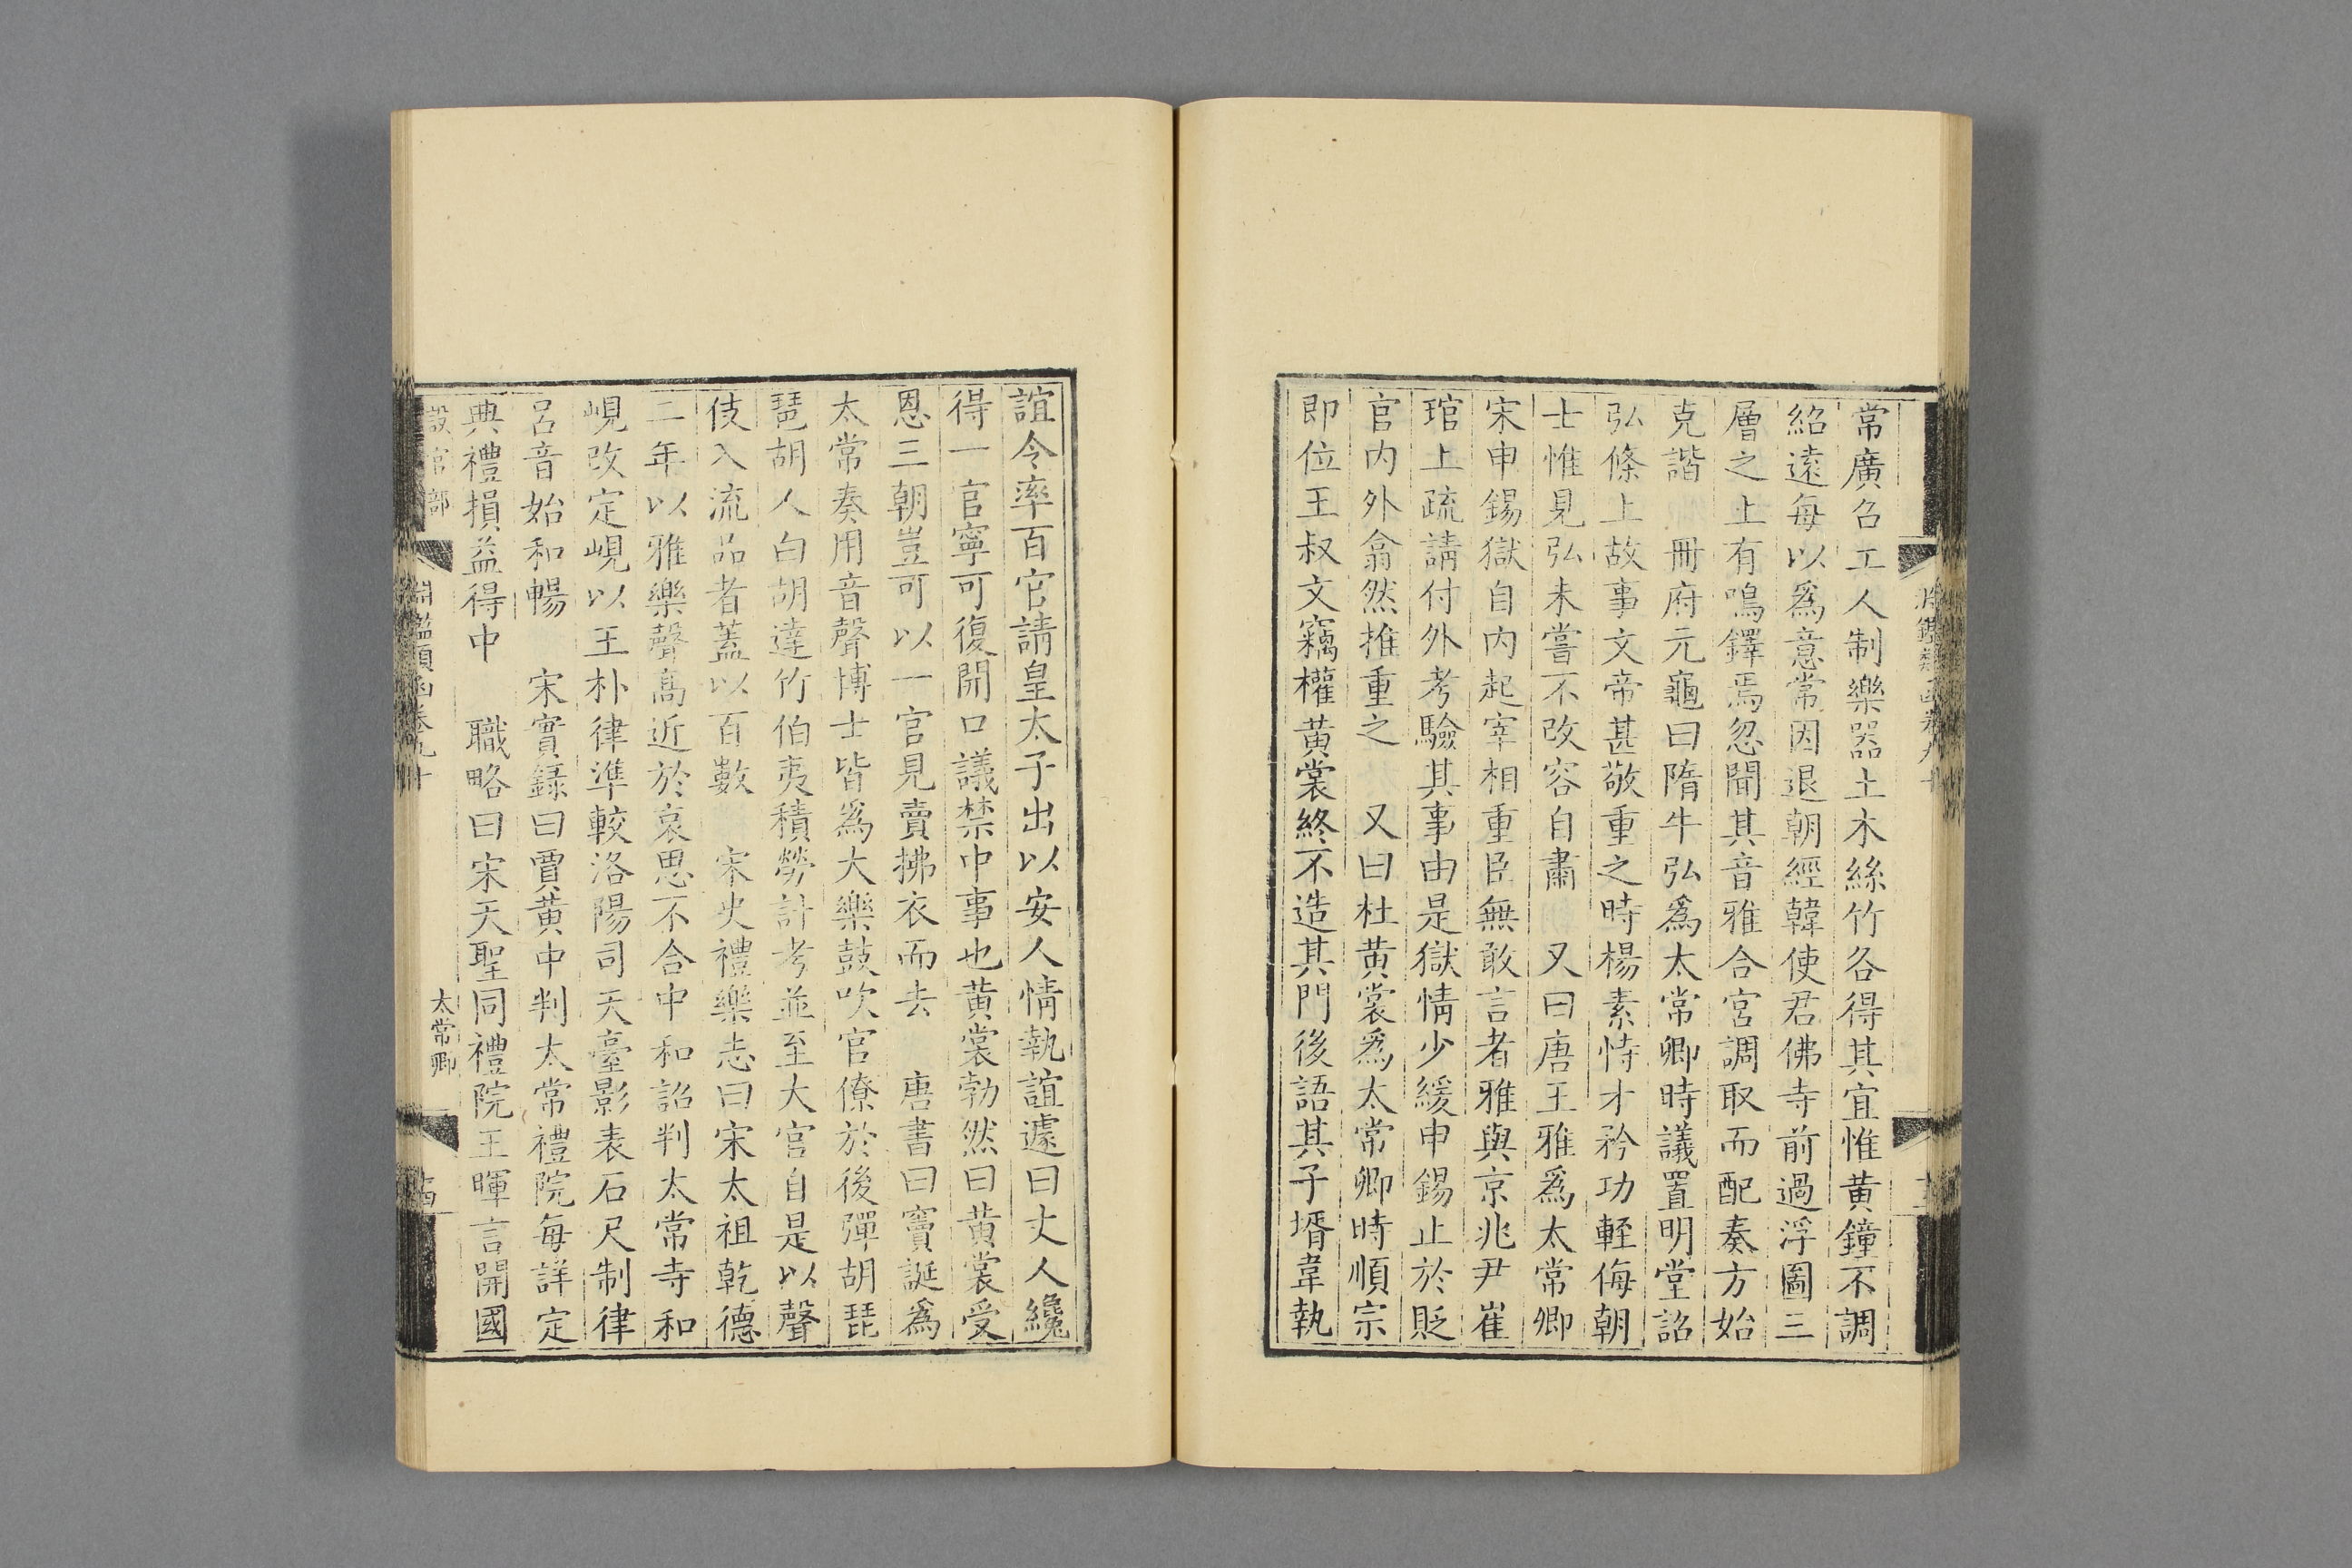 常廣召工人制樂器土木絲竹各得其宜惟黃鐘不調
紹遠每以爲意常因退朝經韓使君佛寺前過浮圖三
層之上有鳴鐸焉忽聞其音雅合宮調取而配奏方始
克諧　冊府元龜曰隋牛弘爲太常卿時議置明堂詔
弘條上故事文帝甚敬重之時楊素恃才矜功輕侮朝
士惟見弘未嘗不改容自肅　又曰唐王雅爲太常卿
宋申錫獄自内起宰相重臣無敢言者雅與京兆尹崔
琯上疏請付外考驗其事由是獄情少緩申錫止於貶
官内外翕然推重之　又曰杜黃裳爲太常卿時順宗
即位王叔文竊權黃裳終不造其門後語其子壻韋執
誼令率百官請皇太子出以安人情執誼遽曰丈人纔
得一官寧可復開口議禁中事也黃裳勃然曰黃裳受
恩三朝豈可以一官見賣拂衣而去　唐書曰竇誕爲
太常奏用音聲博士皆爲大樂鼓吹官僚於後彈胡琵
琶胡人白胡達竹伯夷積勞計考並至大官自是以聲
伎入流品者蓋以百數　宋史禮樂志曰宋太祖乾德
二年以雅樂聲高近於哀思不合中和詔判太常寺和
峴改定峴以王朴律準較洛陽司天臺影表石尺制律
呂音始和暢　宋實錄曰賈黃中判太常禮院每詳定
典禮損益得中　職略曰宋天聖同禮院王暉言開國
設官部
淵鑑類函卷九十
太常卿
十四